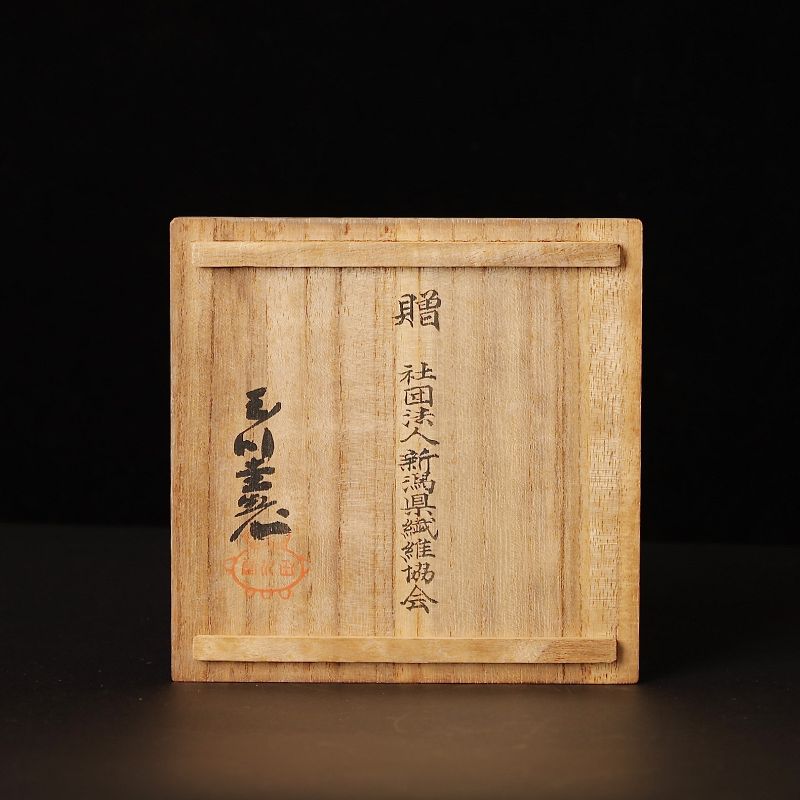 贈
社団法人新潟県繊維協会
玉川堂